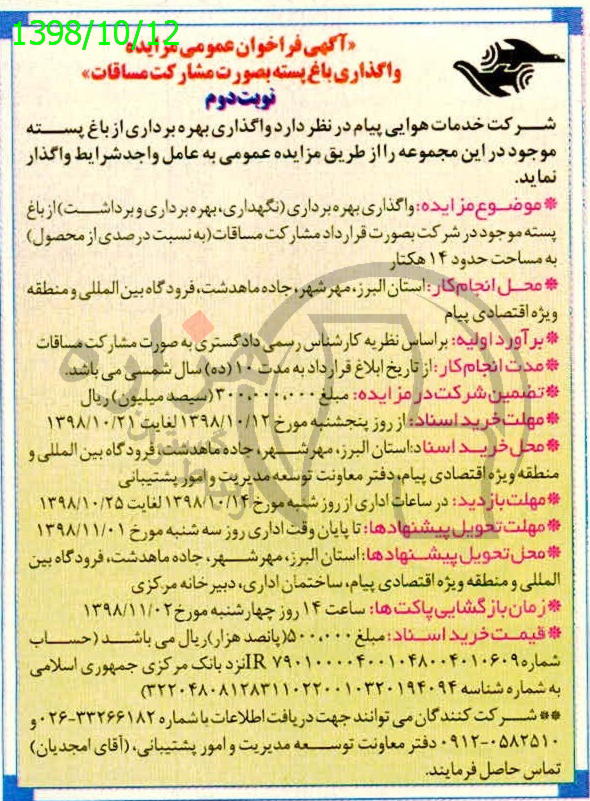 1398/10/12
«آگهی فراخوان عمومی مزایده
واگذاری باغ پسته بصورت مشارکت مساقات»
نوبت دوم
شرکت خدمات هوایی پیام در نظر دارد واگذاری بهره برداری از باغ پسته
موجود در این مجموعه را از طریق مزایده عمومی به عامل واجد شرایط واگذار
نماید.
*موضوع مزایده: واگذاری بهره برداری (نگهداری، بهره برداری و برداشت) از باغ
پسته موجود در شرکت بصورت قرارداد مشارکت مساقات (به نسبت درصدی از محصول)
به مساحت حدود ۱۴ هکتار
*محل انجام کار: استان البرز، مهرشهر، جاده ماهدشت، فرودگاه بین المللی و منطقه
ویژه اقتصادی پیام
*برآورد اولیه: براساس نظریه کارشناس رسمی دادگستری به صورت مشارکت مساقات
*مدت انجام کار: از تاریخ ابلاغ قرارداد به مدت ۱۰ (ده) سال شمسی می باشد.
*تضمین شرکت در مزایده: مبلغ ۳۰۰،۰۰۰،۰۰۰ (سیصد میلیون) ریال
*مهلت خرید اسناد: از روز پنجشنبه مورخ ۱۳۹۸/۱۰/۱۲ لغایت ۱۳۹۸/۱۰/۲۱
*محل خرید اسناد: استان البرز، مهرشهر، جاده ماهدشت، فرودگاه بین المللی و
منطقه ویژه اقتصادی پیام، دفتر معاونت توسعه مدیریت و امور پشتیبانی
*مهلت بازدید: در ساعات اداری از روز شنبه مورخ ۱۳۹۸/۱۰/۱۴ لغایت ۱۳۹۸/۱۰/۲۵
*مهلت تحویل پیشنهادها: تا پایان وقت اداری روز سه شنبه مورخ ۱۳۹۸/۱۱/۰۱
*محل تحویل پیشنهادها: استان البرز، مهرشهر، جاده ماهدشت، فرودگاه بین
المللی و منطقه ویژه اقتصادی پیام، ساختمان اداری، دبیرخانه مرکزی
*زمان بازگشایی پاکت ها: ساعت ۱۴ روز چهارشنبه مورخ ۱۳۹۸/۱۱/۰۲
*قیمت خرید اسناد: مبلغ ۵۰۰،۰۰۰ (پانصد هزار) ریال می باشد (حساب
شماره IR ۷۹۰۱۰۰۰۰۴۰۰۱۰۴۸۰۰۴۰۱۰۶۰۹ نزد بانک مرکزی جمهوری اسلامی
به شماره شناسه ۳۲۲۰۴۸۰۸۱۲۸۳۱۱۰۲۲۰۰۱۰۳۲۰۱۹۴۰۹۴)
** شرکت کنندگان می توانند جهت دریافت اطلاعات با شماره ۰۲۶-۳۳۲۶۶۱۸۲ و
۰۹۱۲-۰۵۸۲۵۱۰ دفتر معاونت توسعه مدیریت و امور پشتیبانی، (آقای امجدیان)
تماس حاصل فرمایند.